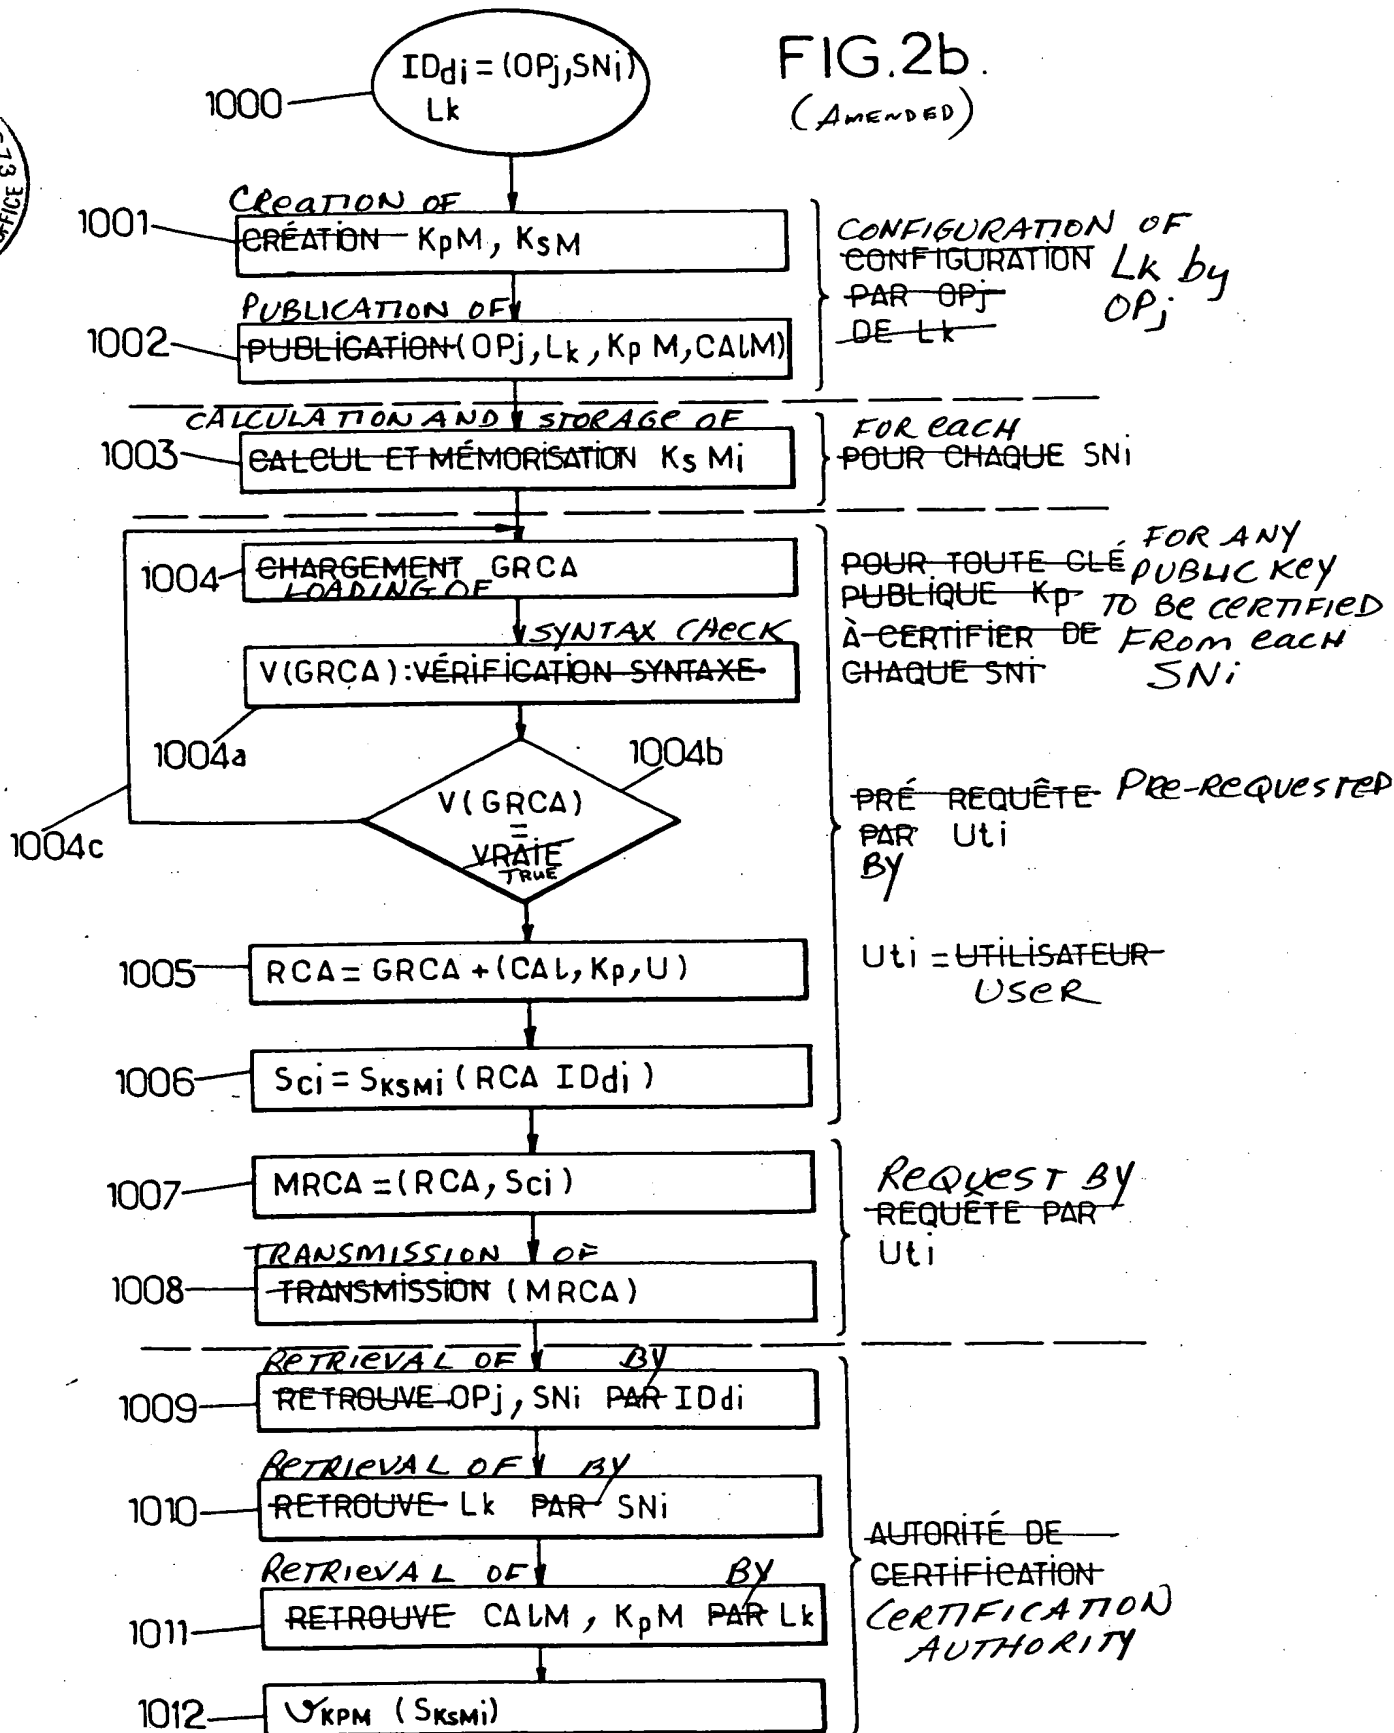 FIG.2b.
(AMENDED)
IDdi = (OPj,SNi)
Lk
1000
CREATION OF
1001
CRÉATION KpM, KsM
PUBLICATION OF
1002
PUBLICATION (OPj, Lk, KpM, CALM)
CONFIGURATION OF
CONFIGURATION Lk by
PAR OPj OPj
DE Lk
CALCULATION AND STORAGE OF
1003
CALCUL ET MÉMORISATION KsMi
FOR EACH
POUR CHAQUE SNi
1004
CHARGEMENT GRCA
LOADING OF
SYNTAX CHECK
V(GRCA):VÉRIFICATION SYNTAXE
1004a
1004b
V(GRCA)
=
VRAIE
TRUE
1004c
FOR ANY
POUR TOUTE CLÉ PUBLIC KEY
PUBLIQUE Kp TO BE CERTIFIED
À CERTIFIER DE FROM EACH
CHAQUE SNi SNi
PRÉ REQUÊTE PRE-REQUESTED
PAR Uti
BY
Uti = UTILISATEUR
USER
1005
RCA = GRCA + (CAL, Kp, U)
1006
Sci = SKSMi (RCA IDdi)
1007
MRCA = (RCA, Sci)
TRANSMISSION OF
1008
TRANSMISSION (MRCA)
REQUEST BY
REQUÊTE PAR
Uti
RETRIEVAL OF BY
1009
RETROUVE OPj, SNi PAR IDdi
RETRIEVAL OF BY
1010
RETROUVE Lk PAR SNi
RETRIEVAL OF BY
1011
RETROUVE CALM, KpM PAR Lk
1012
𝒱KPM (SKsMi)
AUTORITÉ DE
CERTIFICATION
CERTIFICATION
AUTHORITY